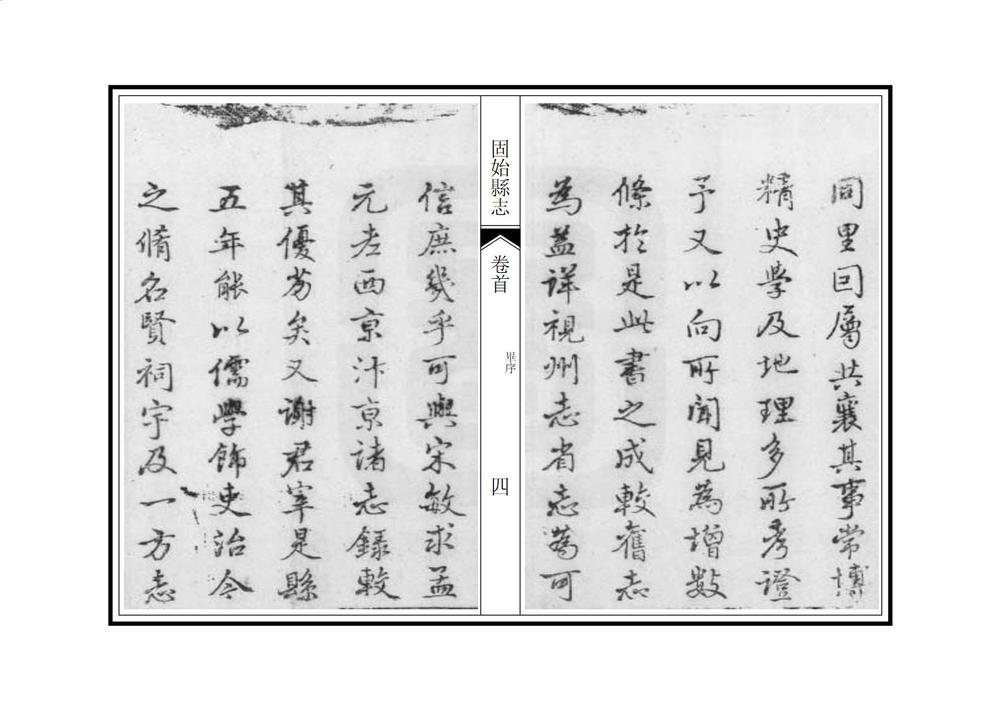 同里囙屬共襄其事常博
精史學及地理多所考證
予又以向所聞見為增數
條於是此書之成較舊志
為益詳視州志省志為可
固始縣志
卷首
畢序
四
信庶幾乎可與宋敏求孟
元老西京汴京諸志錄較
其優劣矣又謝君宰是縣
五年能以儒學飾吏治今
之脩名賢祠宇及一方志